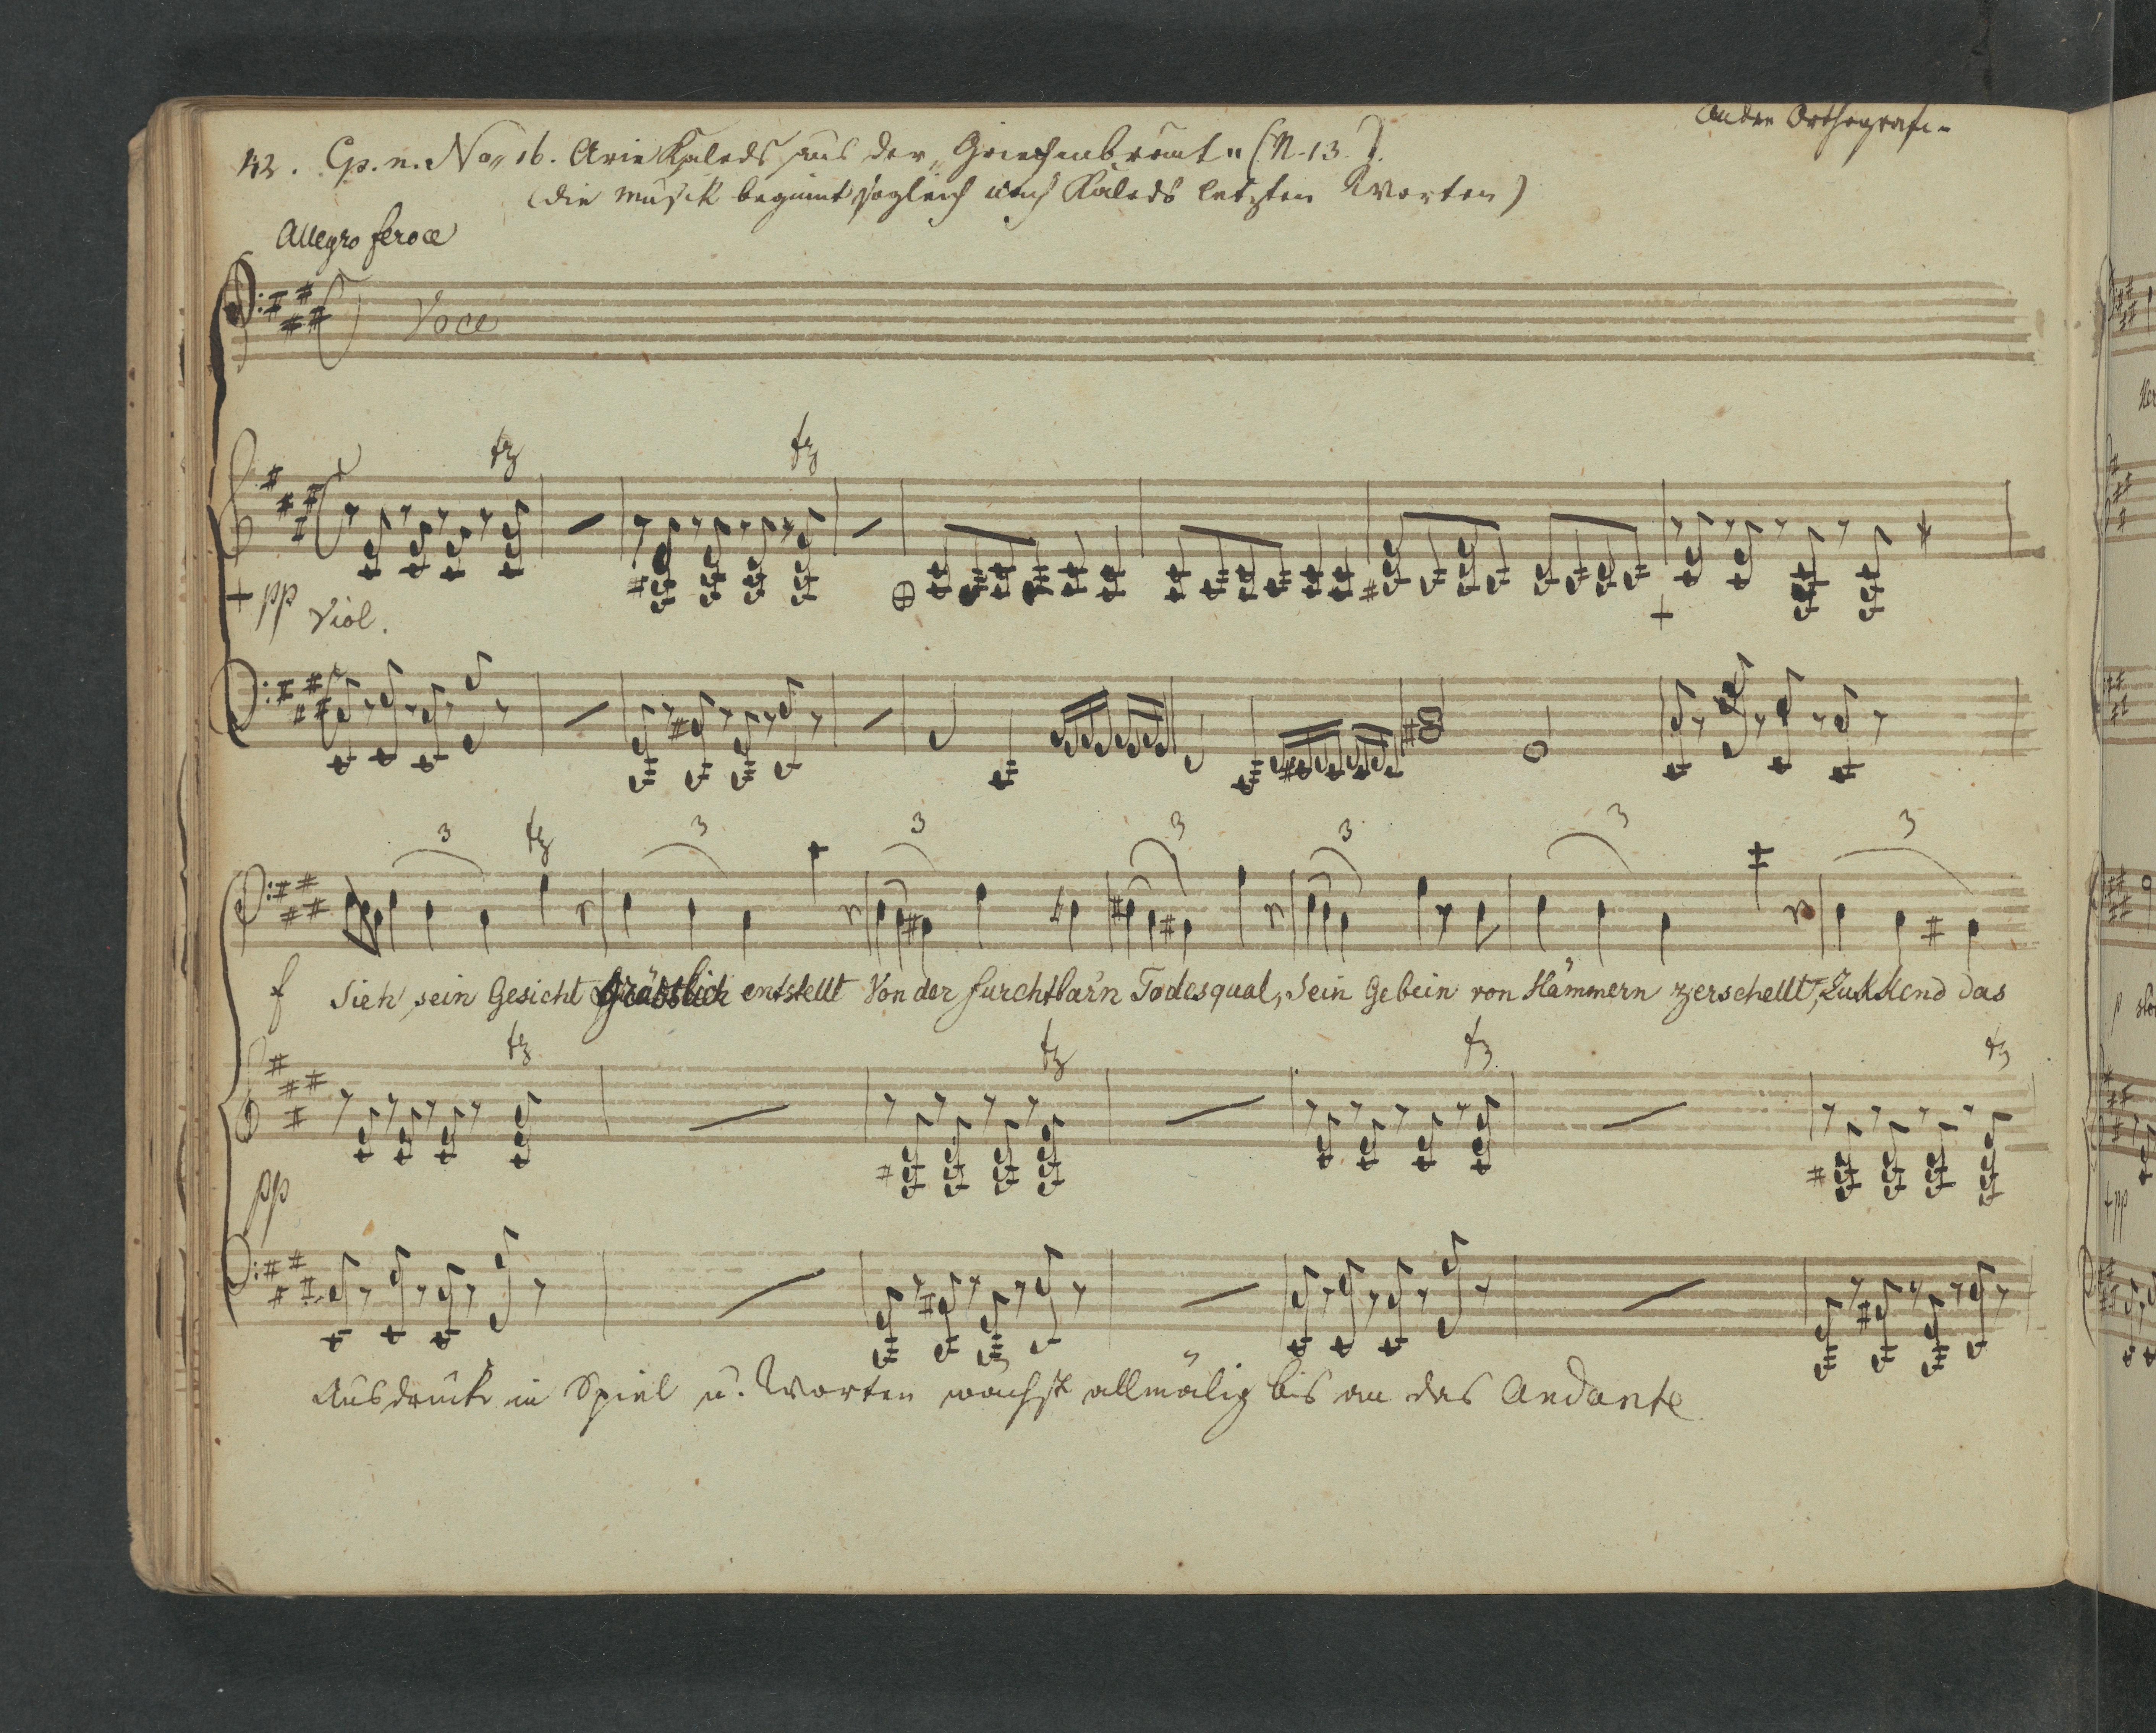 andre Orthografi-
42. Cp. n. No„ 16. Arie Kaleds aus der „Griechenbraut" (N. 13.).
(die Musik beginnt sogleich nach Kaleds letzten Worten)
Allegro feroce
Voce
fz fz
pp Viol.
3 fz 3 3 3 3 3 3
f Sieh' sein Gesicht Gräßlich entstellt Von der furchtbar'n Todesqual, Sein Gebein von Hämmern zerschellt, Zukkend das
fz fz fz fz
pp
Ausdruck in Spiel u. Worten wächst allmälig bis an das Andante